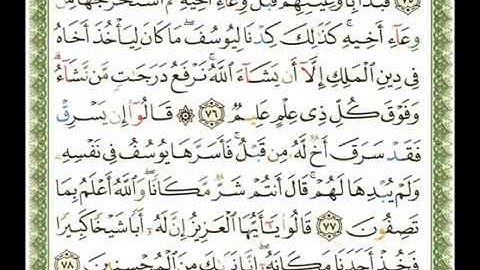 فَبَدَأَ بِأَوْعِيَتِهِمْ قَبْلَ وِعَآءِ أَخِيهِ ثُمَّ ٱسْتَخْرَجَهَا مِن
وِعَآءِ أَخِيهِ ۚ كَذَٰلِكَ كِدْنَا لِيُوسُفَ ۖ مَا كَانَ لِيَأْخُذَ أَخَاهُ
فِى دِينِ ٱلْمَلِكِ إِلَّآ أَن يَشَآءَ ٱللَّهُ ۚ نَرْفَعُ دَرَجَٰتٍ مَّن نَّشَآءُ ۗ
وَفَوْقَ كُلِّ ذِى عِلْمٍ عَلِيمٌ ٧٦ ۞ قَالُوٓا۟ إِن يَسْرِقْ
فَقَدْ سَرَقَ أَخٌ لَّهُۥ مِن قَبْلُ ۚ فَأَسَرَّهَا يُوسُفُ فِى نَفْسِهِۦ
وَلَمْ يُبْدِهَا لَهُمْ ۚ قَالَ أَنتُمْ شَرٌّ مَّكَانًا ۖ وَٱللَّهُ أَعْلَمُ بِمَا
تَصِفُونَ ٧٧ قَالُوا۟ يَٰٓأَيُّهَا ٱلْعَزِيزُ إِنَّ لَهُۥٓ أَبًا شَيْخًا كَبِيرًا
فَخُذْ أَحَدَنَا مَكَانَهُۥٓ ۖ إِنَّا نَرَىٰكَ مِنَ ٱلْمُحْسِنِينَ ٧٨